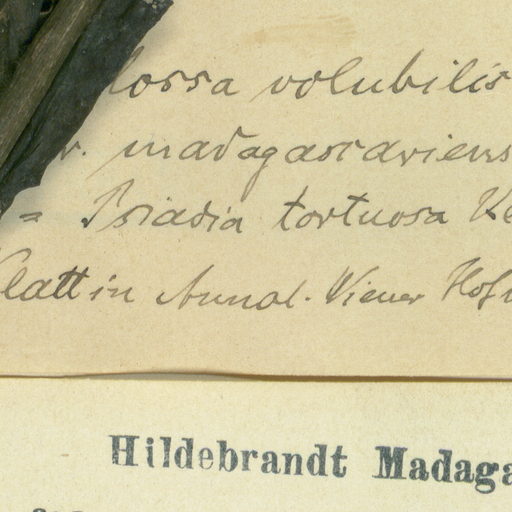 lossa volubilis
v. madagascariens
= Psiadia tortuosa Ke
Klatt in Annal. Wiener Hofm
Hildebrandt Madaga